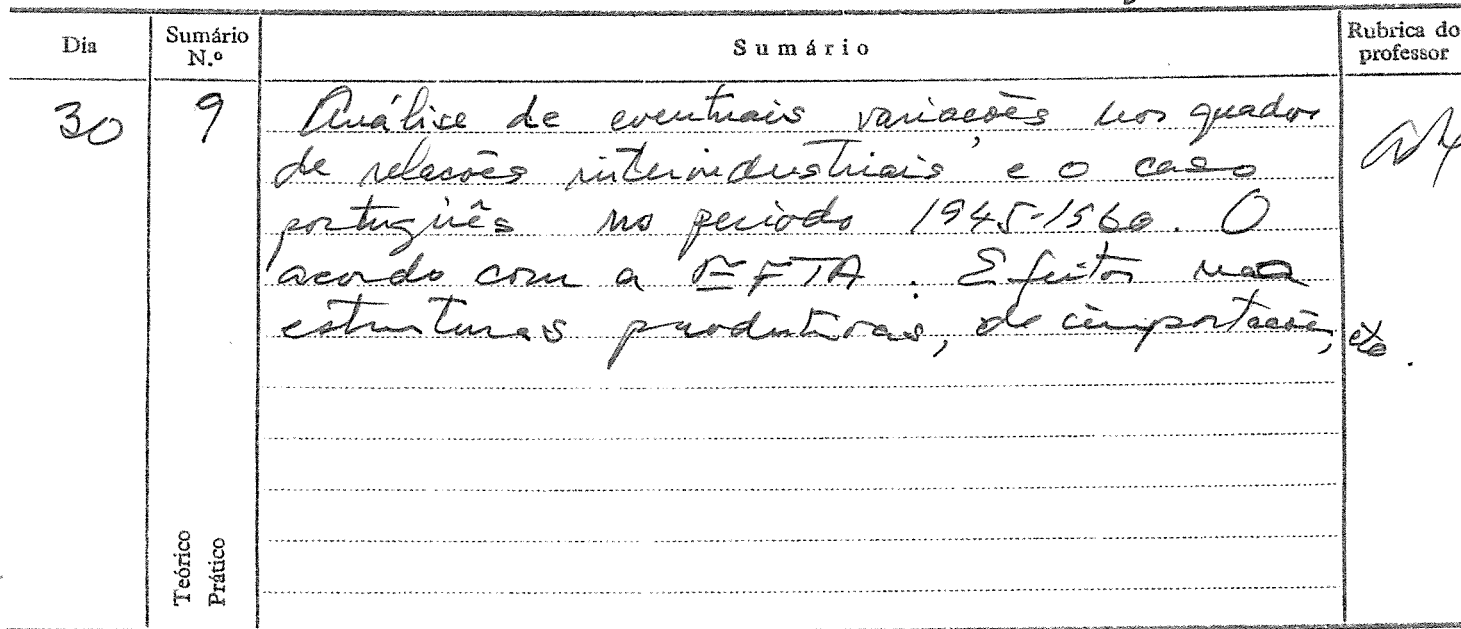 Dia
Sumário
N.º
Sumário
Rubrica do
professor
30
9
Análise de eventuais variações nos quadros
de relações interindustriais e o caso
português no período 1945-1960. O
acordo com a EFTA. Efeitos nas
estruturas produtivas, de importação, etc.
Teórico
Prático